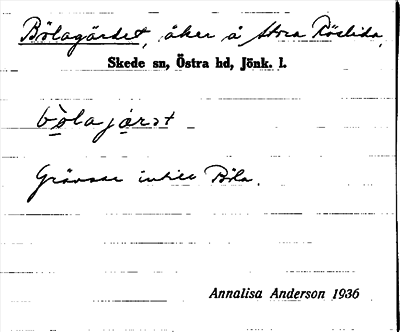 Bölagärdet, åker å Stora Röslida.
Skede sn, Östra hd, Jönk. l.
bò̱laja̱rst
Gränsar intill Böla.
Annalisa Anderson 1936